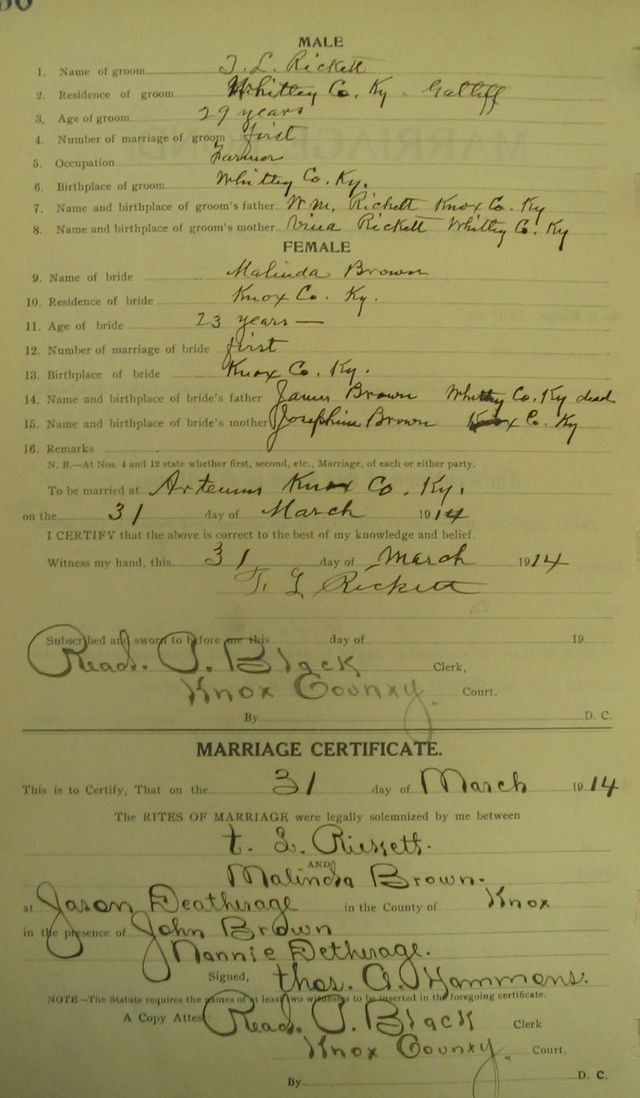 MALE
1. Name of groom T. L. Rickett
2. Residence of groom Whitley Co. Ky. Gatliff
3. Age of groom 29 years
4. Number of marriage of groom first
5. Occupation Farmer
6. Birthplace of groom Whitley Co. Ky.
7. Name and birthplace of groom's father W.M. Rickett Knox Co. Ky
8. Name and birthplace of groom's mother Vina Rickett Whitley Co. Ky
FEMALE
9. Name of bride Malinda Brown
10. Residence of bride Knox Co. Ky.
11. Age of bride 23 years
12. Number of marriage of bride first
13. Birthplace of bride Knox Co. Ky.
14. Name and birthplace of bride's father James Brown Whitley Co. Ky dead
15. Name and birthplace of bride's mother Josephine Brown Knox Co. Ky
16. Remarks
N. B.—At Nos. 4 and 12 state whether first, second, etc., Marriage, of each or either party.
To be married at Artemus Knox Co. Ky.
on the 31 day of March 1914
I CERTIFY that the above is correct to the best of my knowledge and belief.
Witness my hand, this 31 day of March 1914
T. L. Rickett
Subscribed and sworn to before me this day of 19
Read. P. Black Clerk,
Knox County. Court.
By D. C.
MARRIAGE CERTIFICATE.
This is to Certify, That on the 31 day of March 1914
The RITES OF MARRIAGE were legally solemnized by me between
t. L. Rickett.
AND
Malinda Brown.
at Jason Deatherage in the County of Knox
in the presence of John Brown
Nannie Detherage.
Signed, thos. A. Hammons.
NOTE—The Statute requires the names of at least two witnesses to be inserted in the foregoing certificate.
A Copy Attest: Read. P. Black Clerk
Knox County. Court,
By D. C.